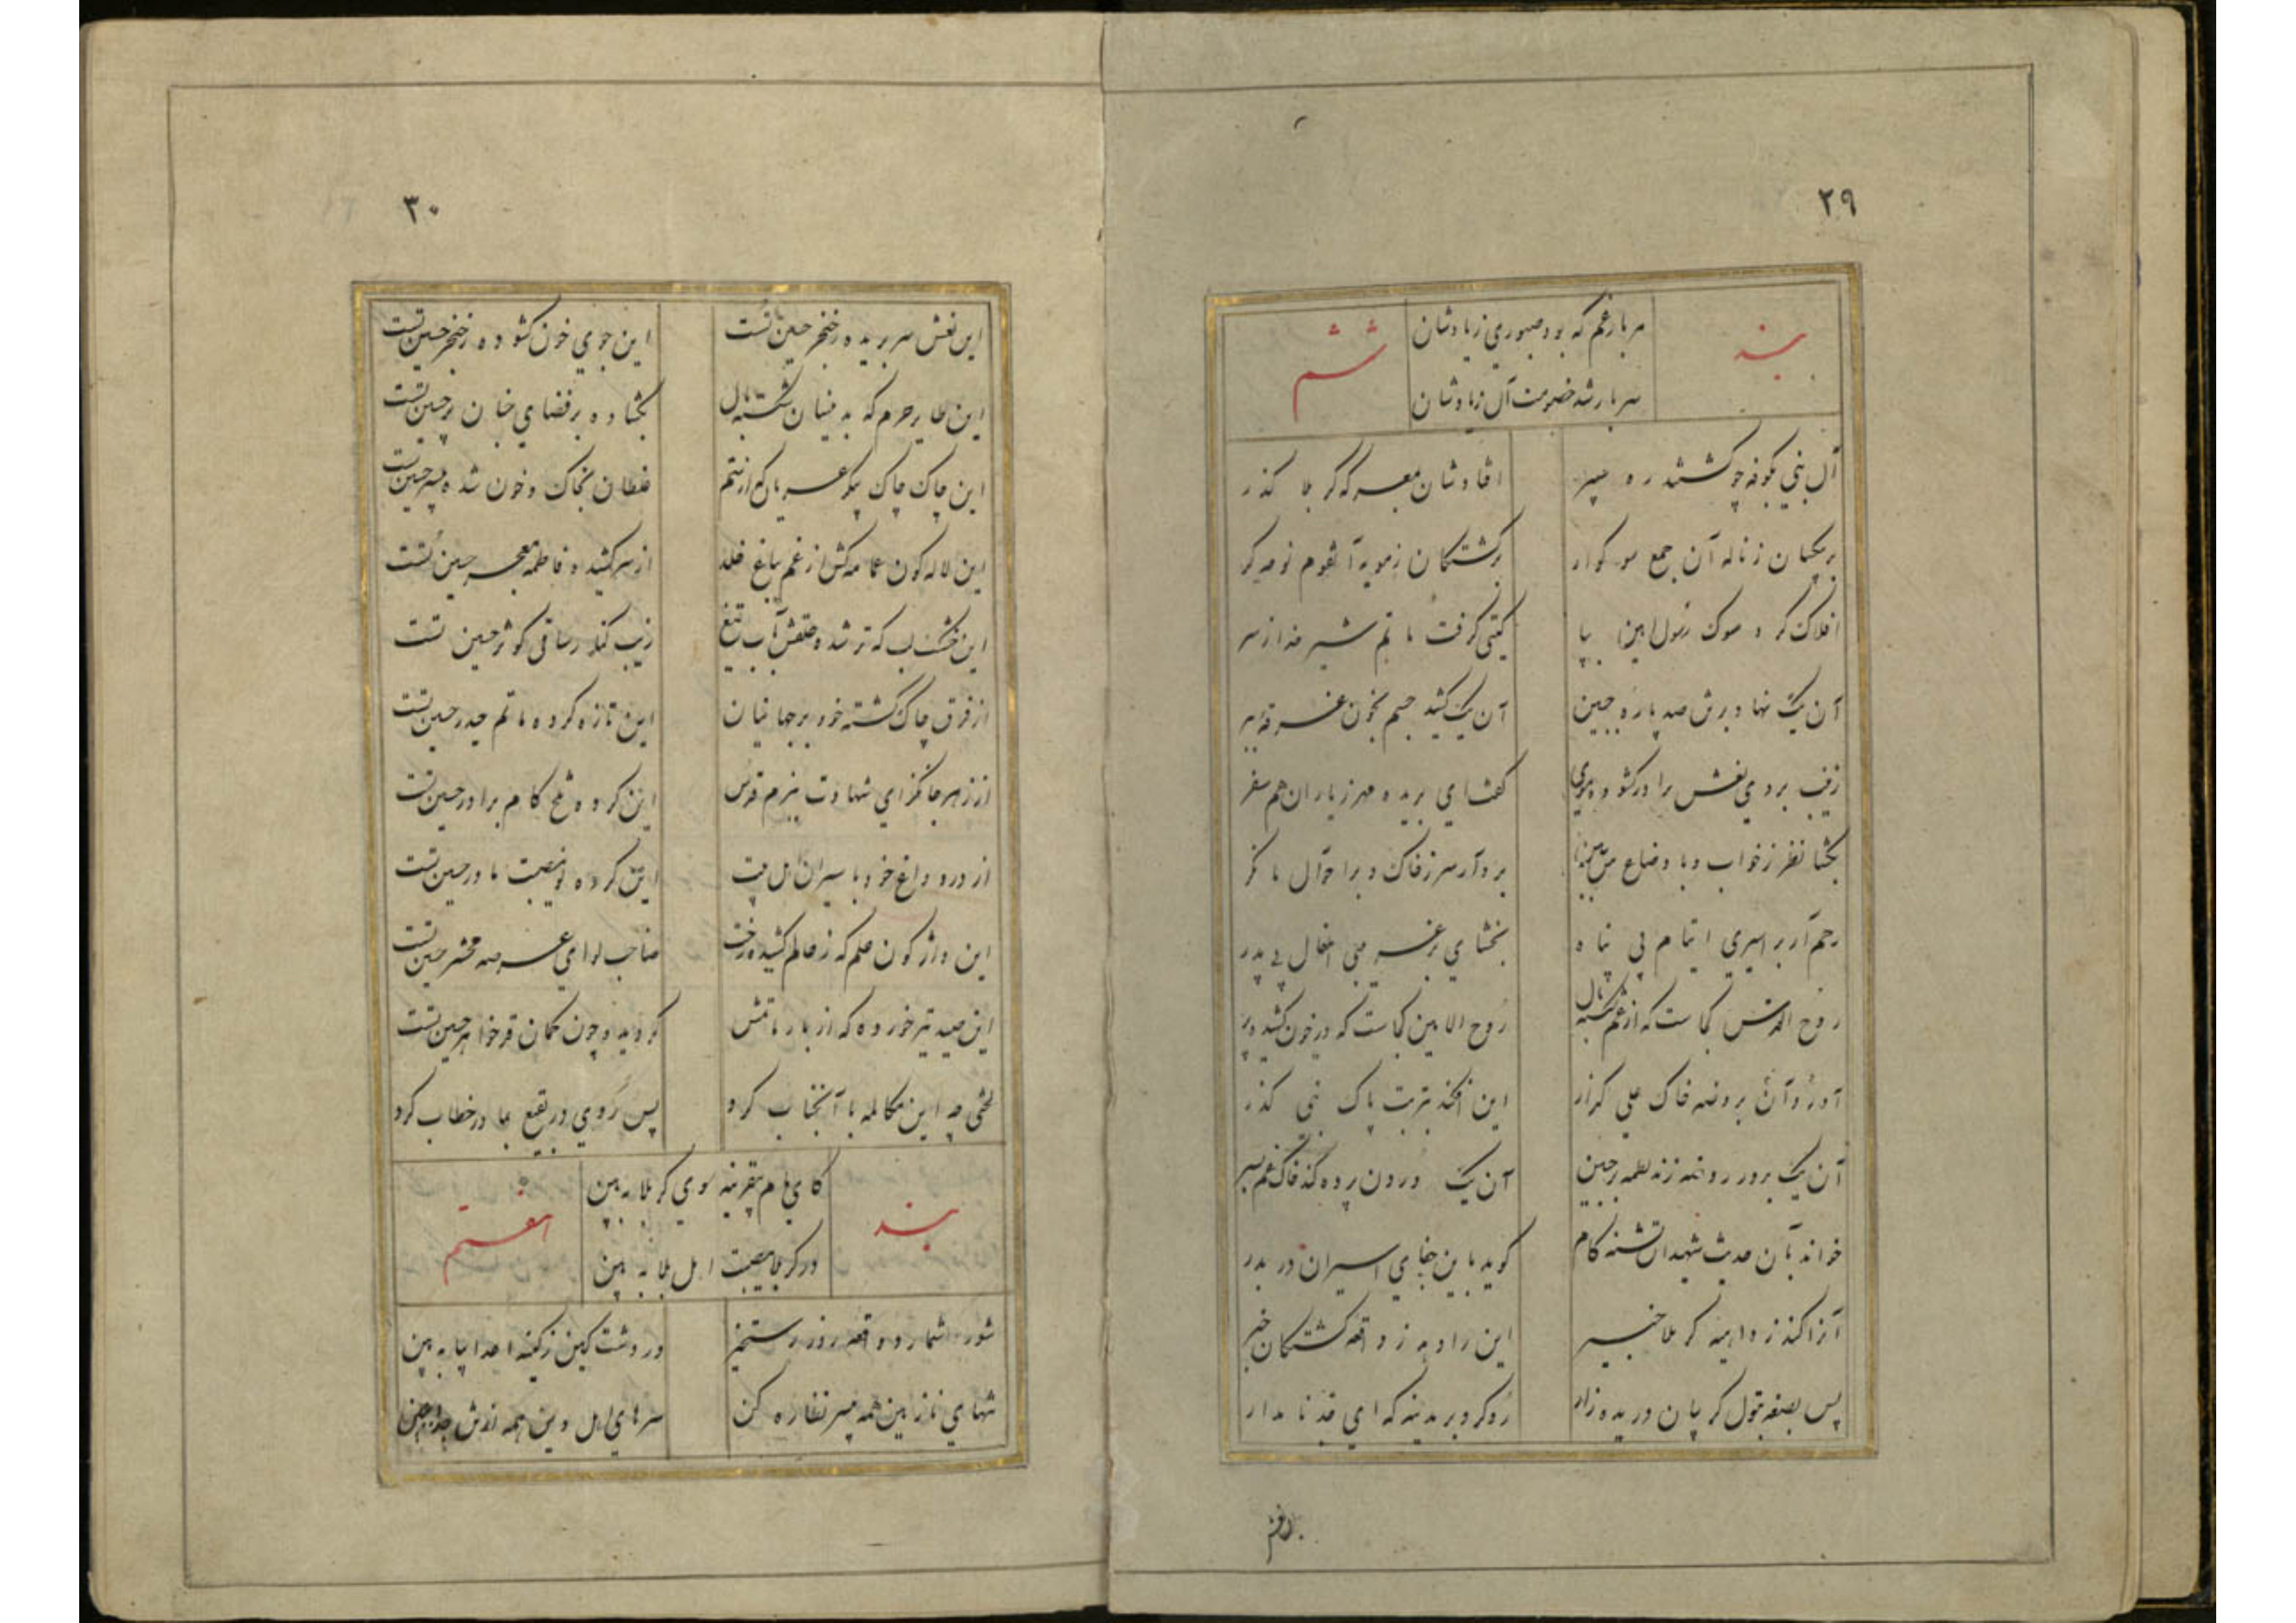 ۲۹
بند
هر بار غم که بود صبوری زیادشان
سربار شد خصومت آل زیادشان
ششم
آل نبی بکوفه چو گشتند ره سپر افتادشان بمعرکه کربلا گذر
بر کشتگان ز مویه آنقوم نوحه گر
افلاک کرد سوک رسول امین بپا گیتی گرفت ماتم شیر خدا از سر
آن یک نهاد برتن صد پاره جبین آن یک کشید جسم بخون غرقه ببر
زینب بروی نعش برادر گشود موی گفت ای بریده مهر ز یاران هم سفر
بگشا نظر ز خواب و باوضاع من ببین بردار سر ز خاک و بر احوال ما نگر
رحم آر بر اسیری ایتام بی پناه بخشای بر غریبی اطفال بی پدر
روح القدس کجاست که از غم شکسته بال روح الامین کجاست که در خون کشیده پر
آورد آن بروضه خاک علی گذار این افکند بتربت پاک نبی گذر
آن یک بر در روضه زند لطمه بر جبین آن یک درون پرده کند خاک غم بسر
خواند بآن حدیث شهیدان تشنه کام گوید باین جفای اسیران در بدر
آنرا کند ز داهیه کربلا خبیر این را دهد ز واقعه کشتگان خبر
پس بضعه بتول گریبان دریده زار رو کرد بر مدینه که ای جد نامدار
۳۰
این نعش سر بریده ز خنجر حسین تست این جوی خون گشوده ز خنجر حسین تست
این طایر حرم که بدینسان شکسته بال بگشاده بر فضای جنان پر حسین تست
این چاک چاک پیکر عریان که از ستم غلطان بخاک و خون شده بیسر حسین تست
این لاله گون عمامه کش از غم بباغ خلد از سر کشیده فاطمه معجر حسین تست
این خشک لب که تر شده حلقش بآب تیغ زیب کنار ساقی کوثر حسین تست
از فرق چاک گشته خود بر جهانیان این تازه کرده ماتم حیدر حسین تست
از زهر جانگزای شهادت ببزم قدس این کرده تلخ کام برادر حسین تست
از درد و داغ خود با سیران اهل بیت این کرده نو مصیبت مادر حسین تست
این واژگون علم که ز عالم کشیده رخت صاحب لوای عرصه محشر حسین تست
این صید تیر خورده که از بار ماتمش گردیده چون کمان قد خواهر حسین تست
لختی چه این مکالمه با آنجناب کرد پس روی در بقیع بمادر خطاب کرد
بند
کای مام بیقرینه سوی کربلا ببین
در کربلا مصیبت اهل بلا ببین
هفتم
شور شمار و واقعه روز رستخیز در دشت کین ز کینه اعدا بپا ببین
تنهای نازنین همه بیسر نظاره کن سرهای اهل دین همه از تن جدا ببین